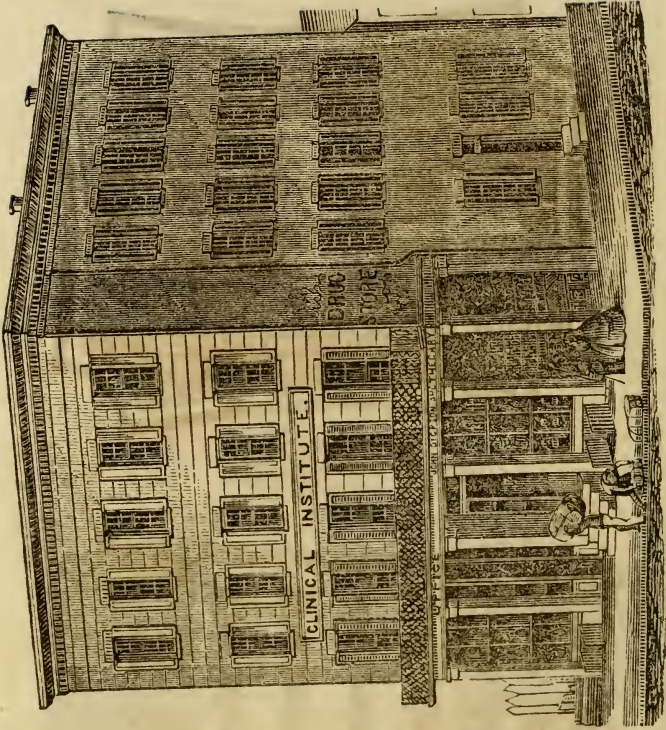 CLINICAL INSTITUTE.
DRUG
STORE
OFFICE